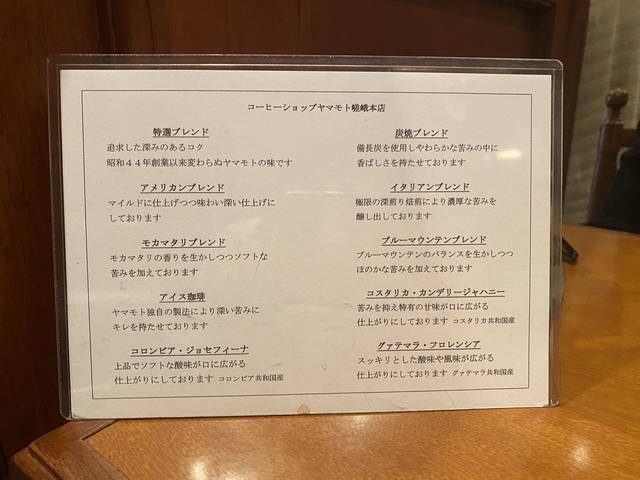 コーヒーショップヤマモト嵯峨本店
特選ブレンド
追求した深みのあるコク
昭和４４年創業以来変わらぬヤマモトの味です
アメリカンブレンド
マイルドに仕上げつつ味わい深い仕上げに
しております
モカマタリブレンド
モカマタリの香りを生かしつつソフトな
苦みを加えております
アイス珈琲
ヤマモト独自の製法により深い苦みに
キレを持たせております
コロンビア・ジョセフィーナ
上品でソフトな酸味が口に広がる
仕上がりにしております コロンビア共和国産
炭焼ブレンド
備長炭を使用しやわらかな苦みの中に
香ばしさを持たせております
イタリアンブレンド
極限の深煎り焙煎により濃厚な苦みを
醸し出しております
ブルーマウンテンブレンド
ブルーマウンテンのバランスを生かしつつ
ほのかな苦みを加えております
コスタリカ・カンデリージャハニー
苦みを抑え特有の甘味が口に広がる
仕上がりにしております コスタリカ共和国産
グァテマラ・フロレンシア
スッキリとした酸味や風味が広がる
仕上がりにしております グァテマラ共和国産